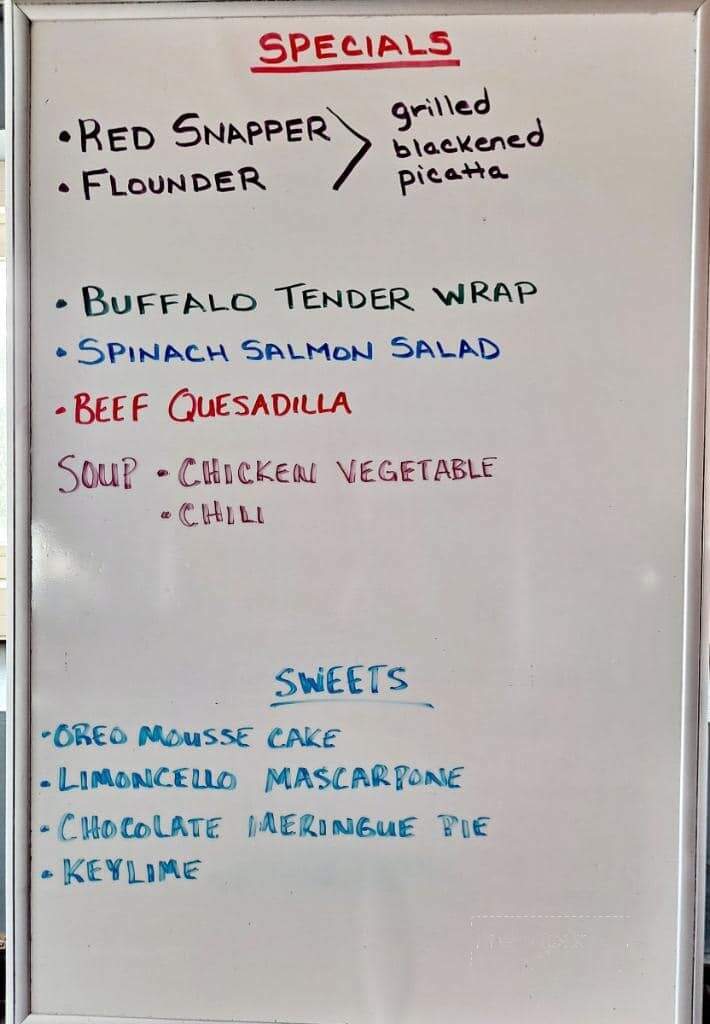 SPECIALS
• RED SNAPPER
• FLOUNDER
grilled
blackened
picatta
• BUFFALO TENDER WRAP
• SPINACH SALMON SALAD
• BEEF QUESADILLA
SOUP • CHICKEN VEGETABLE
• CHILI
SWEETS
• OREO MOUSSE CAKE
• LIMONCELLO MASCARPONE
• CHOCOLATE MERINGUE PIE
• KEYLIME